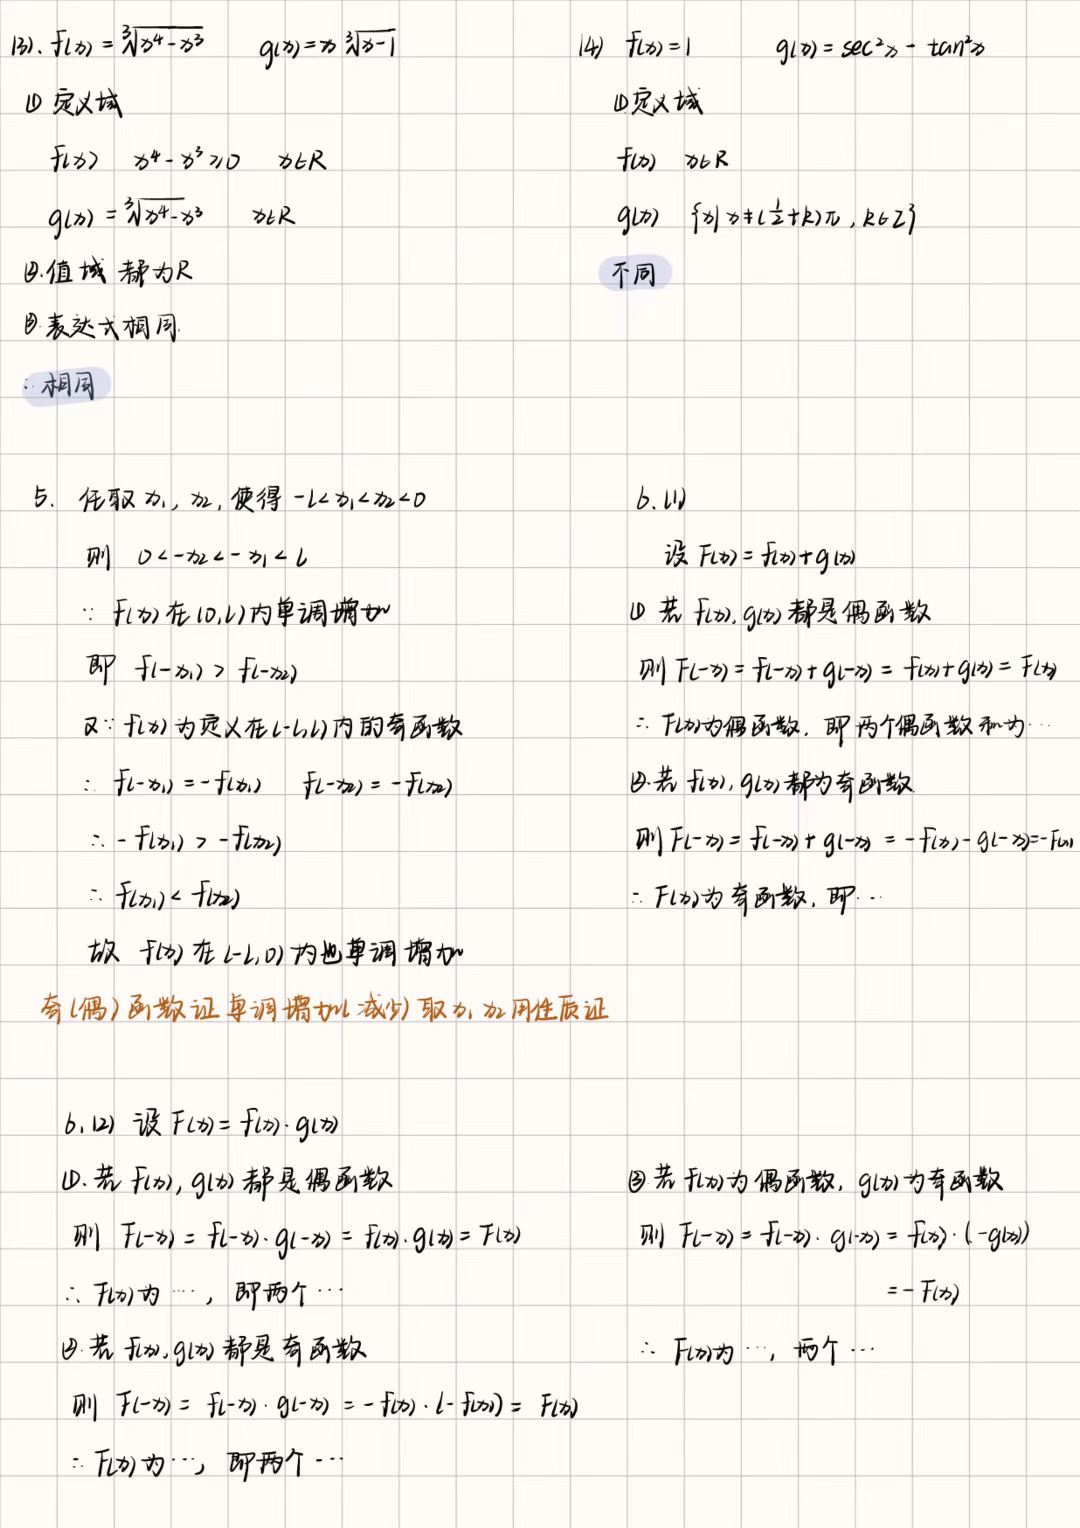 (3). f(x) = ∛(x⁴-x³)  g(x) = x ∛(x-1)
① 定义域
f(x)  x⁴-x³≥0  x∈R
g(x) = ∛(x⁴-x³)  x∈R
②.值域 都为R
③.表达式相同.
∴ 相同
(4) f(x)=1  g(x)=sec²x - tan²x
①定义域
f(x)  x∈R
g(x)  {x|x≠(½+k)π, k∈Z}
不同
5. 任取 x₁, x₂, 使得 -l<x₁<x₂<0
则 0<-x₂<-x₁<l
∵ f(x)在(0,l)内单调增加
即 f(-x₁) > f(-x₂)
又∵ f(x)为定义在(-l,l)内的奇函数
∴ f(-x₁) = -f(x₁)  f(-x₂) = -f(x₂)
∴ -f(x₁) > -f(x₂)
∴ f(x₁) < f(x₂)
故 f(x) 在 (-l,0) 内也单调增加
奇(偶)函数证单调增加(减少)取x₁ x₂用性质证
6.(1)
设 F(x) = f(x)+g(x)
① 若 f(x), g(x) 都是偶函数
则 F(-x) = f(-x)+g(-x) = f(x)+g(x) = F(x)
∴ F(x)为偶函数, 即两个偶函数和为…
②.若 f(x), g(x) 都为奇函数
则 F(-x) = f(-x)+g(-x) = -f(x)-g(-x)=-F(x)
∴ F(x)为奇函数, 即…
6.(2) 设 F(x) = f(x)·g(x)
①.若 f(x), g(x) 都是偶函数
则 F(-x) = f(-x)·g(-x) = f(x)·g(x) = F(x)
∴ F(x)为…, 即两个…
②.若 f(x), g(x) 都是奇函数
则 F(-x) = f(-x)·g(-x) = -f(x)·(-f(x)) = F(x)
∴ F(x)为…, 即两个…
③ 若 f(x)为偶函数, g(x)为奇函数
则 F(-x) = f(-x)·g(-x) = f(x)·(-g(x))
= -F(x)
∴ F(x)为…, 两个…